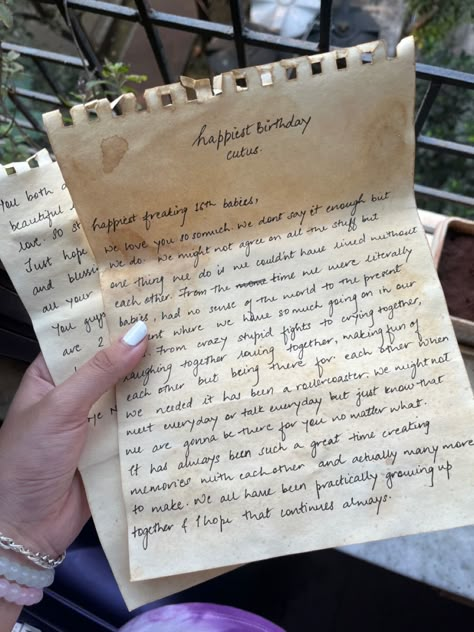 happiest Birthday
cutus.
happiest freaking 16th babies,
We love you so much. We dont say it enough but
we do. We might not agree on all the stuff but
one thing we do is we couldnt have lived without
each other. From the time we were literally
babies, had no sense of the world to the present
where we have so much going on in our
From crazy stupid fights to crying together,
laughing together, making fun of
each other but being there for each other when
we needed it has been a rollercoaster. We might not
meet everyday or talk everyday but just know that
we are gonna be there for you no matter what.
It has always been such a great time creating
memories with each other and actually many more
to make. We all have been practically growing up
together & I hope that continues always.
You both
beautiful
love. so
Just hope
and
all your
You guys
are 2